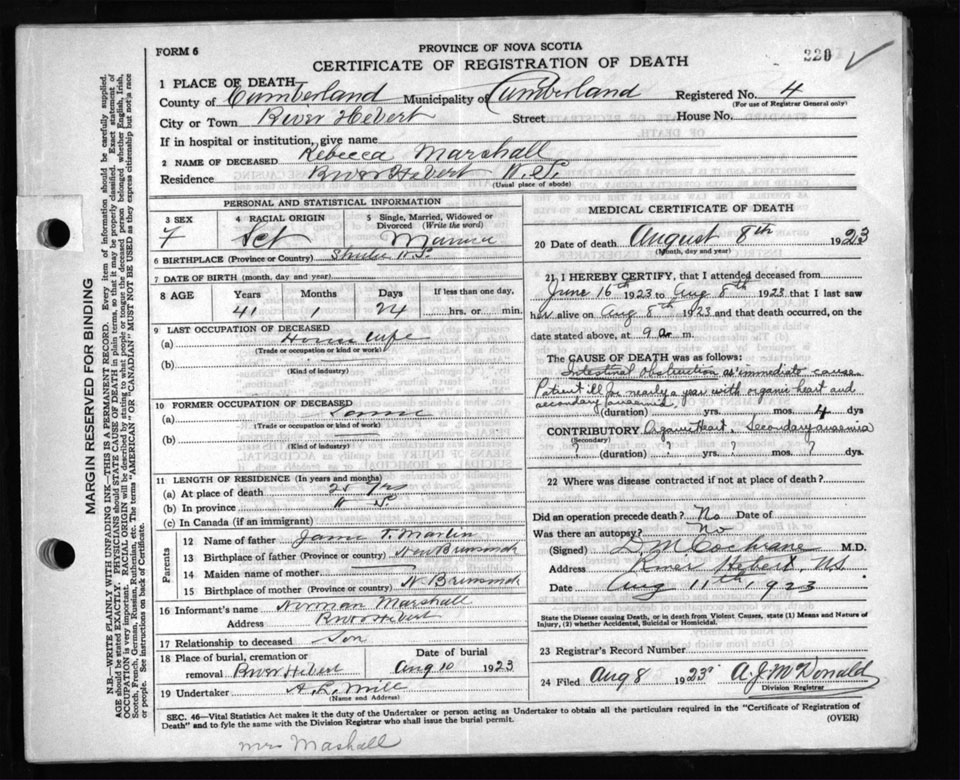 FORM 6
PROVINCE OF NOVA SCOTIA
220
CERTIFICATE OF REGISTRATION OF DEATH
1 PLACE OF DEATH
County of Cumberland Municipality of Cumberland Registered No. 4
(For use of Registrar General only)
City or Town River Hebert Street House No.
If in hospital or institution, give name
2 NAME OF DECEASED Rebecca Marshall
Residence River Hebert N.S.
(Usual place of abode)
PERSONAL AND STATISTICAL INFORMATION
3 SEX
F
4 RACIAL ORIGIN
Sct
5 Single, Married, Widowed or Divorced (Write the word)
6 BIRTHPLACE (Province or Country) Shulie N.S.
7 DATE OF BIRTH (month, day and year)
8 AGE Years Months Days If less than one day,
41 1 24 hrs. or min.
9 LAST OCCUPATION OF DECEASED
(a) House wife
(Trade or occupation or kind or work)
(b)
(Kind of industry)
10 FORMER OCCUPATION OF DECEASED
(a)
(Trade or occupation or kind of work)
(b)
(Kind of industry)
11 LENGTH OF RESIDENCE (In years and months)
(a) At place of death 25 yrs
(b) In province
(c) In Canada (if an immigrant)
Parents
12 Name of father T. Martin
13 Birthplace of father (Province or country) New Brunswick
14 Maiden name of mother
15 Birthplace of mother (Province or country) N. Brunswick
16 Informant's name Norman Marshall
Address River Hebert
17 Relationship to deceased Son
18 Place of burial, cremation or removal River Hebert
Date of burial
Aug 10 1923
19 Undertaker
(Name and Address)
MEDICAL CERTIFICATE OF DEATH
20 Date of death August 8th 1923
(Month, day and year)
21 I HEREBY CERTIFY, that I attended deceased from
June 16th 1923 to Aug 8th 1923 that I last saw
her alive on Aug 8th 1923 and that death occurred, on the
date stated above, at 9 a m.
The CAUSE OF DEATH was as follows:
Intestinal obstruction as immediate cause.
Patient ill for nearly a year with organic heart and
secondary anaemia,
(duration) yrs. mos. 4 dys
CONTRIBUTORY Organic Heart, Secondary anaemia
(Secondary)
? (duration) ? yrs. ? mos. ? dys.
22 Where was disease contracted if not at place of death?
Did an operation precede death? No Date of
Was there an autopsy? No
(Signed) L. M Cochrane M.D.
Address River Hebert, N.S.
Date Aug 11th 1923
State the Disease causing Death, or in death from Violent Causes, state (1) Means and Nature of
Injury, (2) whether Accidental, Suicidal or Homicidal.
23 Registrar's Record Number
24 Filed Aug 8 1923 A. J. McDonald
Division Registrar
SEC. 46—Vital Statistics Act makes it the duty of the Undertaker or person acting as Undertaker to obtain all the particulars required in the "Certificate of Registration of
Death" and to fyle the same with the Division Registrar who shall issue the burial permit.
(OVER)
mrs Mashall
MARGIN RESERVED FOR BINDING
N.B.—WRITE PLAINLY WITH UNFADING INK—THIS IS A PERMANENT RECORD. Every item of information should be carefully supplied.
AGE should be stated EXACTLY. PHYSICIANS should STATE CAUSE OF DEATH in plain terms, so that it may be properly classified. Exact statement of
OCCUPATION is very important. RACIAL ORIGIN will be described by stating to what people or tongue the deceased person belonged, whether English, Irish,
Scotch, French, German, Russian, Ruthenian, etc. The terms "AMERICAN" OR "CANADIAN" MUST NOT BE USED as they express citizenship but not a race
or people. See instructions on back of Certificate.